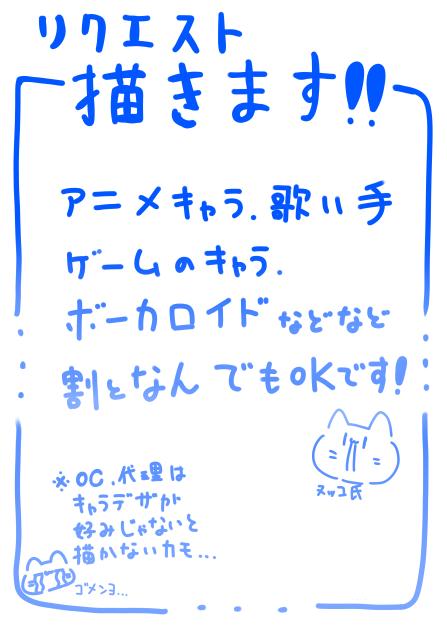 リクエスト
描きます!!
アニメキャラ.歌い手
ゲームのキャラ.
ボーカロイドなどなど
割となんでもOKです!
ヌッコ氏
※OC.代理は
キャラデザが
好みじゃないと
描かないカモ...
ゴメンヨ...